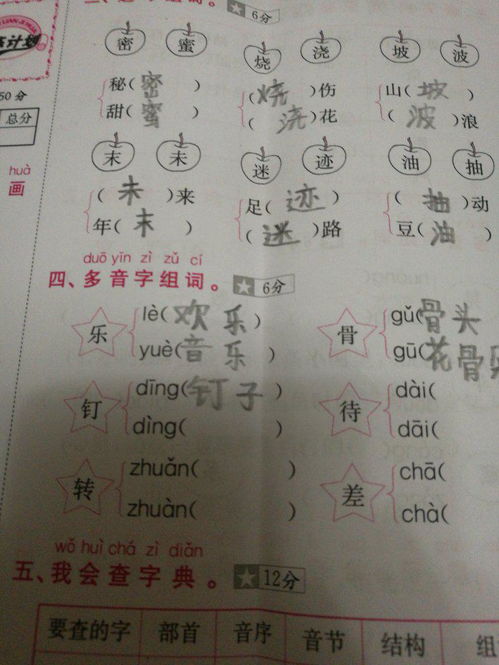 6分
密 蜜 烧 浇 坡 波
秘(密) (烧)伤 山(坡)
甜(蜜) (浇)花 (波)浪
50分
总分
末 未 迷 迹 油 抽
huà
画
(未)来 足(迹) (抽)动
年(末) (迷)路 豆(油)
duō yīn zì zǔ cí
四、多音字组词。 6分
乐 lè(欢乐) 骨 gǔ(骨头
yuè(音乐) gū(花骨
钉 dīng(钉子) 待 dài(
dìng( ) dāi(
转 zhuǎn( ) 差 chā(
zhuàn( ) chà(
wǒ huì chá zì diǎn
五、我会查字典。 12分
要查的字 部首 音序 音节 结构 组